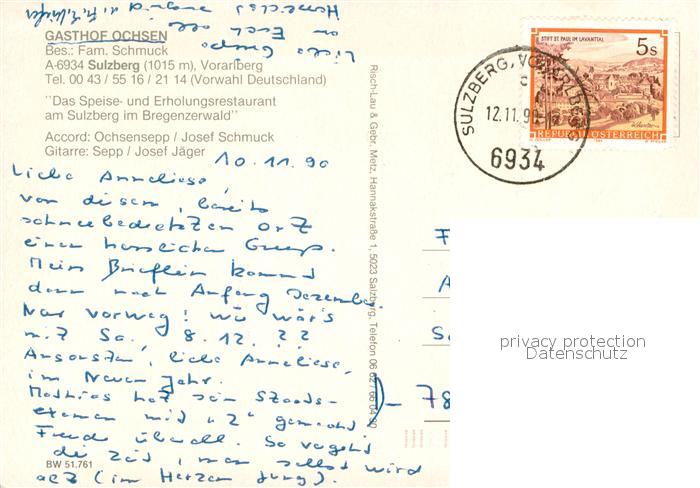 GASTHOF OCHSEN
Bes.: Fam. Schmuck
A-6934 Sulzberg (1015 m), Vorarlberg
Tel. 00 43 / 55 16 / 21 14 (Vorwahl Deutschland)
"Das Speise- und Erholungsrestaurant
am Sulzberg im Bregenzerwald"
Accord: Ochsensepp / Josef Schmuck
Gitarre: Sepp / Josef Jäger
10.11.90
Liebe Anneliese,
von diesem, bereits
schneebedeckten Ort
einen herzlichen Gruss.
Mein Brieflein kommt
dann nach Anfang Dezember.
Nur vorweg! wie wär's
mit Sa, 8.12. ??
Ansonsten, liebe Anneliese,
im Neuen Jahr.
Mathias hat sein Staats-
examen mit "2" gemacht,
Freude überall. So vergeht
die Zeit, man selbst wird
alt (im Herzen jung).
Liebe
an Euch alle
BW 51.761
Risch-Lau & Gebr. Metz, Hannakstraße 1, 5023 Salzburg, Telefon 06 62 / 66 04 90
STIFT ST. PAUL IM LAVANTTAL
5s
REPUBLIK ÖSTERREICH
SULZBERG, VORARLBERG
12.11.90
6934
F
A
S
- 78
privacy protection
Datenschutz